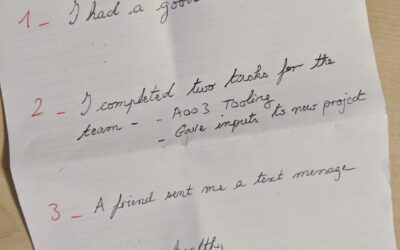 1_ I had a good
2_ I completed two tasks for the
team - - A003 Tooling
- Gave inputs to new project
3_ A friend sent me a text message
healthy